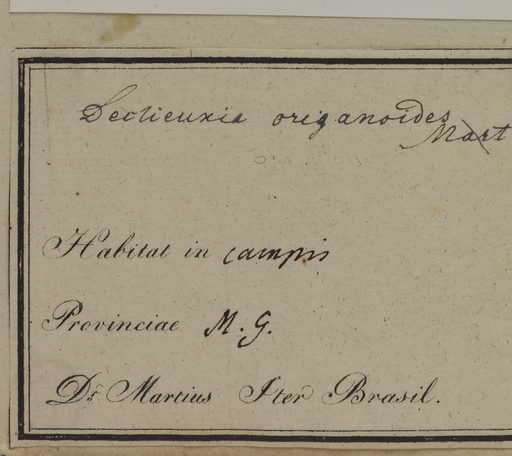 Declieuxia origanoides
Mart
Habitat in campis
Provinciae M. G.
Dr Martius Iter Brasil.